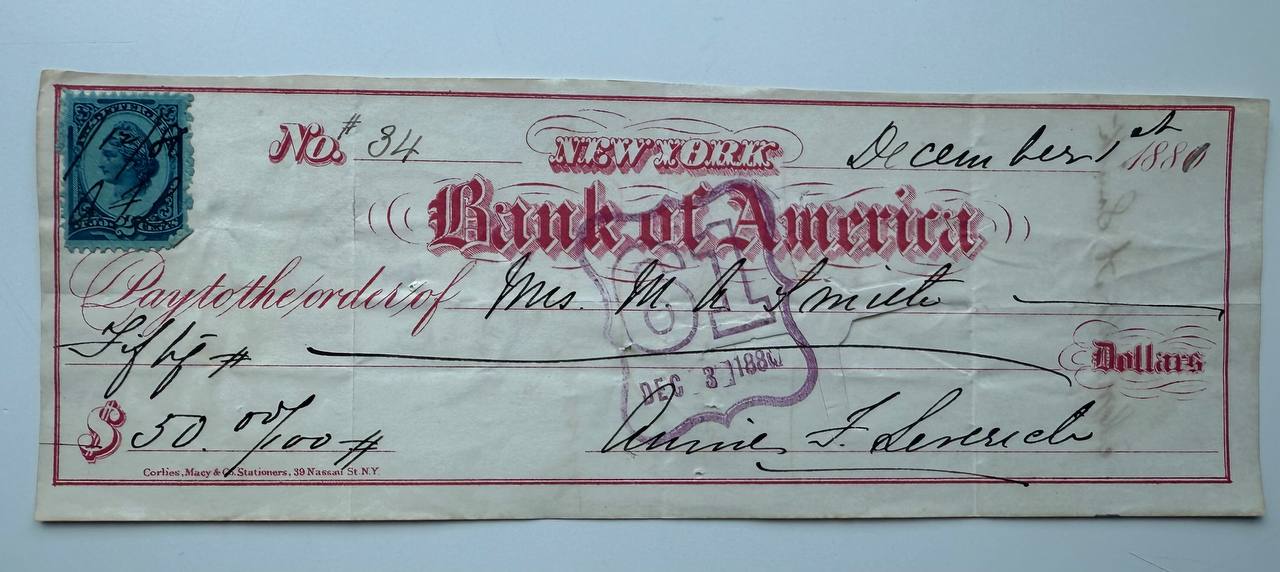 No. # 34
NEW YORK
December 1st 1880
Bank of America
Pay to the order of Mrs. M. A Smith
Fifty #
Dollars
DEC 31 1880
$ 50. 00/100 #
Annie F. Leverich
Corlies, Macy & Co. Stationers, 39 Nassau St. N.Y.